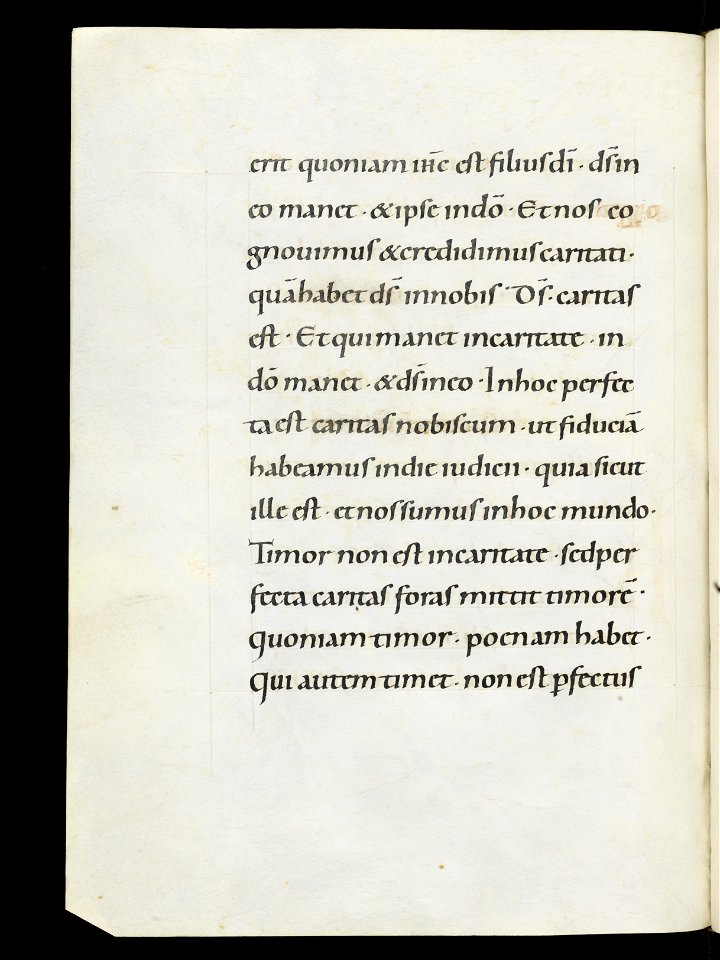 erit quoniam ihc̄ est filius dī · ds̄ in
eo manet · & ipse in dō · Et nos co
gnovimus & credidimus caritati ·
quā habet ds̄ in nobis · Ds̄ · caritas
est · Et qui manet in caritate · in
dō manet · & ds̄ in eo · In hoc perfec
ta est caritas nobiscum · ut fiduciā
habeamus in die iudicii · quia sicut
ille est · et nos sumus in hoc mundo ·
Timor non est in caritate · sed per
fecta caritas foras mittit timorē ·
quoniam timor · poenam habet ·
Qui autem timet · non est ꝑfectus